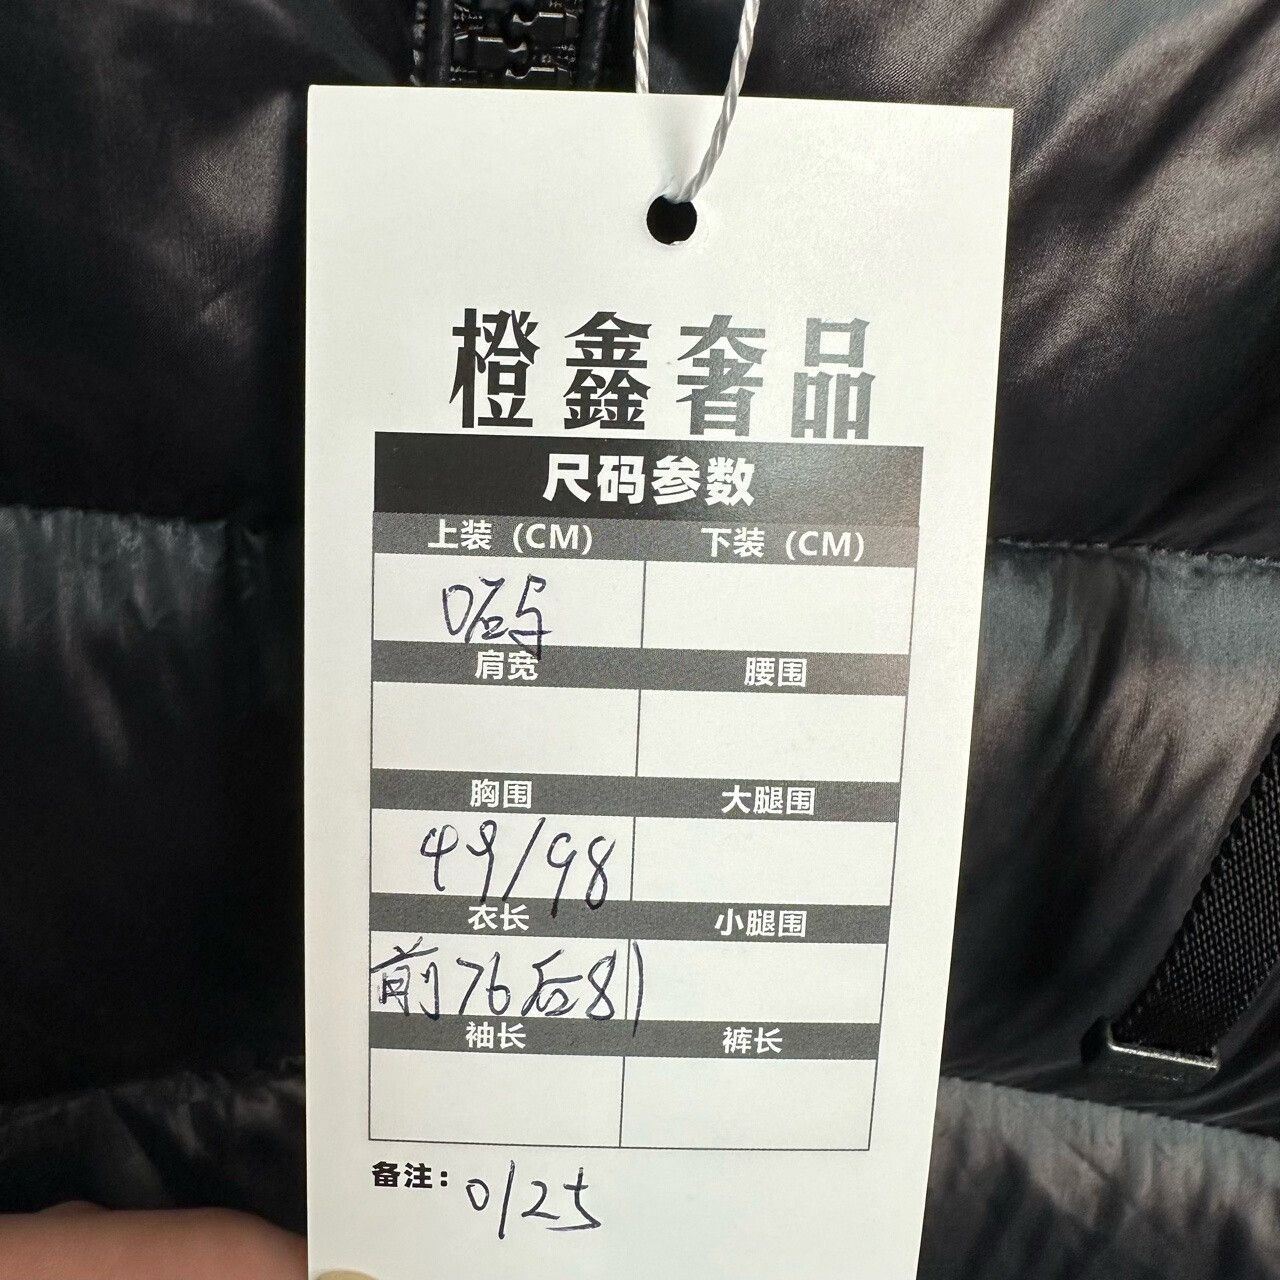 橙鑫奢品
尺码参数
上装（CM） 下装（CM）
0码
肩宽 腰围
胸围 大腿围
49/98
衣长 小腿围
前76后81
袖长 裤长
备注：0125